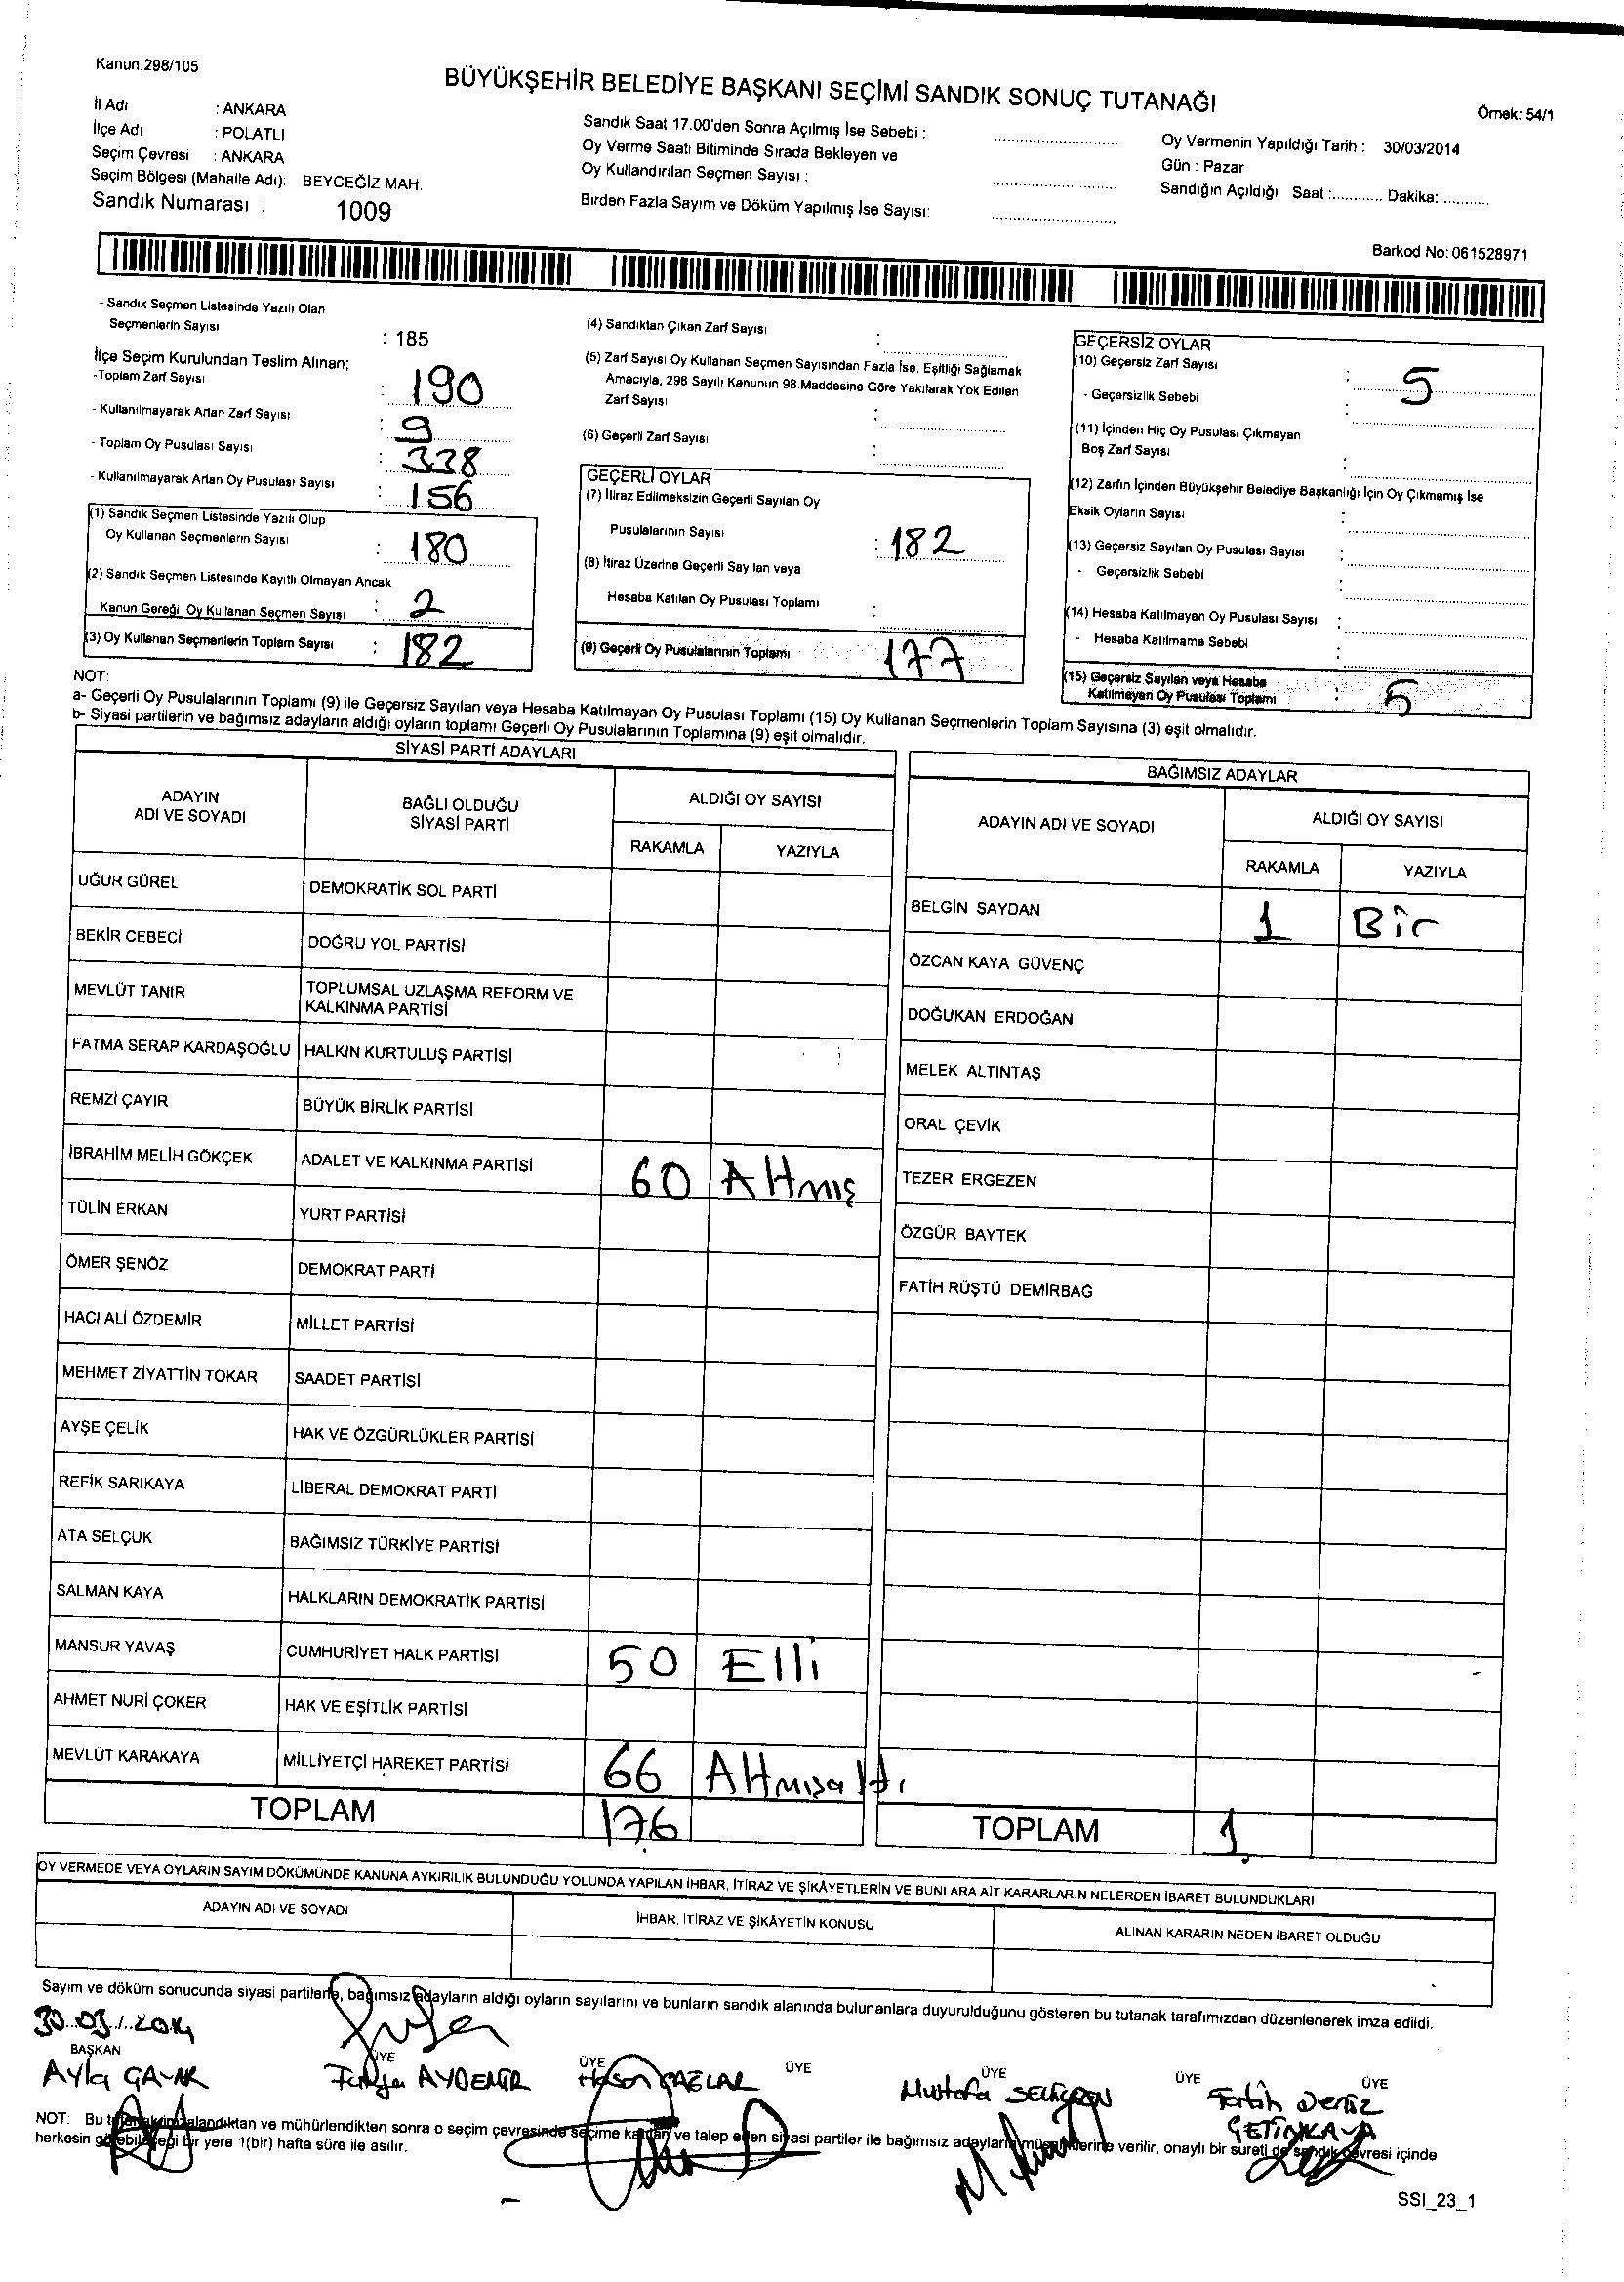 Kanun;298/105
BÜYÜKŞEHİR BELEDİYE BAŞKANI SEÇİMİ SANDIK SONUÇ TUTANAĞI
Örnek: 54/1
İl Adı : ANKARA
İlçe Adı : POLATLI
Seçim Çevresi : ANKARA
Seçim Bölgesi (Mahalle Adı): BEYCEĞİZ MAH.
Sandık Numarası : 1009
Sandık Saat 17.00'den Sonra Açılmış İse Sebebi :
Oy Verme Saati Bitiminde Sırada Bekleyen ve
Oy Kullandırılan Seçmen Sayısı :
Birden Fazla Sayım ve Döküm Yapılmış İse Sayısı:
Oy Vermenin Yapıldığı Tarih : 30/03/2014
Gün : Pazar
Sandığın Açıldığı Saat :............ Dakika:...........
Barkod No: 061528971
- Sandık Seçmen Listesinde Yazılı Olan
Seçmenlerin Sayısı : 185
İlçe Seçim Kurulundan Teslim Alınan;
-Toplam Zarf Sayısı : 190
- Kullanılmayarak Artan Zarf Sayısı : 9
- Toplam Oy Pusulası Sayısı : 338
- Kullanılmayarak Artan Oy Pusulası Sayısı : 156
(1) Sandık Seçmen Listesinde Yazılı Olup
Oy Kullanan Seçmenlerin Sayısı : 180
(2) Sandık Seçmen Listesinde Kayıtlı Olmayan Ancak
Kanun Gereği Oy Kullanan Seçmen Sayısı : 2
(3) Oy Kullanan Seçmenlerin Toplam Sayısı : 182
(4) Sandıktan Çıkan Zarf Sayısı :
(5) Zarf Sayısı Oy Kullanan Seçmen Sayısından Fazla İse, Eşitliği Sağlamak
Amacıyla, 298 Sayılı Kanunun 98.Maddesine Göre Yakılarak Yok Edilen
Zarf Sayısı :
(6) Geçerli Zarf Sayısı :
GEÇERLİ OYLAR
(7) İtiraz Edilmeksizin Geçerli Sayılan Oy
Pusulalarının Sayısı : 182
(8) İtiraz Üzerine Geçerli Sayılan veya
Hesaba Katılan Oy Pusulası Toplamı :
(9) Geçerli Oy Pusulalarının Toplamı : 177
GEÇERSİZ OYLAR
(10) Geçersiz Zarf Sayısı : 5
- Geçersizlik Sebebi :
(11) İçinden Hiç Oy Pusulası Çıkmayan
Boş Zarf Sayısı :
(12) Zarfın İçinden Büyükşehir Belediye Başkanlığı İçin Oy Çıkmamış İse
Eksik Oyların Sayısı :
(13) Geçersiz Sayılan Oy Pusulası Sayısı :
- Geçersizlik Sebebi :
(14) Hesaba Katılmayan Oy Pusulası Sayısı :
- Hesaba Katılmama Sebebi :
(15) Geçersiz Sayılan veya Hesaba
Katılmayan Oy Pusulası Toplamı : 5
NOT:
a- Geçerli Oy Pusulalarının Toplamı (9) ile Geçersiz Sayılan veya Hesaba Katılmayan Oy Pusulası Toplamı (15) Oy Kullanan Seçmenlerin Toplam Sayısına (3) eşit olmalıdır.
b- Siyasi partilerin ve bağımsız adayların aldığı oyların toplamı Geçerli Oy Pusulalarının Toplamına (9) eşit olmalıdır.
SİYASİ PARTİ ADAYLARI
ADAYIN ADI VE SOYADI BAĞLI OLDUĞU SİYASİ PARTİ ALDIĞI OY SAYISI
RAKAMLA YAZIYLA
UĞUR GÜREL DEMOKRATİK SOL PARTİ
BEKİR CEBECİ DOĞRU YOL PARTİSİ
MEVLÜT TANIR TOPLUMSAL UZLAŞMA REFORM VE KALKINMA PARTİSİ
FATMA SERAP KARDAŞOĞLU HALKIN KURTULUŞ PARTİSİ
REMZİ ÇAYIR BÜYÜK BİRLİK PARTİSİ
İBRAHİM MELİH GÖKÇEK ADALET VE KALKINMA PARTİSİ 60 Altmış
TÜLİN ERKAN YURT PARTİSİ
ÖMER ŞENÖZ DEMOKRAT PARTİ
HACI ALİ ÖZDEMİR MİLLET PARTİSİ
MEHMET ZİYATTİN TOKAR SAADET PARTİSİ
AYŞE ÇELİK HAK VE ÖZGÜRLÜKLER PARTİSİ
REFİK SARIKAYA LİBERAL DEMOKRAT PARTİ
ATA SELÇUK BAĞIMSIZ TÜRKİYE PARTİSİ
SALMAN KAYA HALKLARIN DEMOKRATİK PARTİSİ
MANSUR YAVAŞ CUMHURİYET HALK PARTİSİ 50 Elli
AHMET NURİ ÇOKER HAK VE EŞİTLİK PARTİSİ
MEVLÜT KARAKAYA MİLLİYETÇİ HAREKET PARTİSİ 66 Altmışaltı
TOPLAM 176
BAĞIMSIZ ADAYLAR
ADAYIN ADI VE SOYADI ALDIĞI OY SAYISI
RAKAMLA YAZIYLA
BELGİN SAYDAN 1 Bir
ÖZCAN KAYA GÜVENÇ
DOĞUKAN ERDOĞAN
MELEK ALTINTAŞ
ORAL ÇEVİK
TEZER ERGEZEN
ÖZGÜR BAYTEK
FATİH RÜŞTÜ DEMİRBAĞ
TOPLAM 1
OY VERMEDE VEYA OYLARIN SAYIM DÖKÜMÜNDE KANUNA AYKIRILIK BULUNDUĞU YOLUNDA YAPILAN İHBAR, İTİRAZ VE ŞİKAYETLERİN VE BUNLARA AİT KARARLARIN NELERDEN İBARET BULUNDUKLARI
ADAYIN ADI VE SOYADI İHBAR, İTİRAZ VE ŞİKÂYETİN KONUSU ALINAN KARARIN NEDEN İBARET OLDUĞU
Sayım ve döküm sonucunda siyasi partilerle, bağımsız adayların aldığı oyların sayılarını ve bunların sandık alanında bulunanlara duyurulduğunu gösteren bu tutanak tarafımızdan düzenlenerek imza edildi.
30.03.2014
BAŞKAN ÜYE ÜYE ÜYE ÜYE ÜYE ÜYE
Ayla AYDEMİR Hasan ÇAĞLAR Mustafa Fatih Deniz
ÇETİNKAYA
NOT: Bu tutanak imzalandıktan ve mühürlendikten sonra o seçim çevresinde seçime katılan ve talep eden siyasi partiler ile bağımsız adayların müşahitlerine verilir, onaylı bir sureti de sandık çevresi içinde
herkesin görebileceği bir yere 1(bir) hafta süre ile asılır.
SSI_23_1